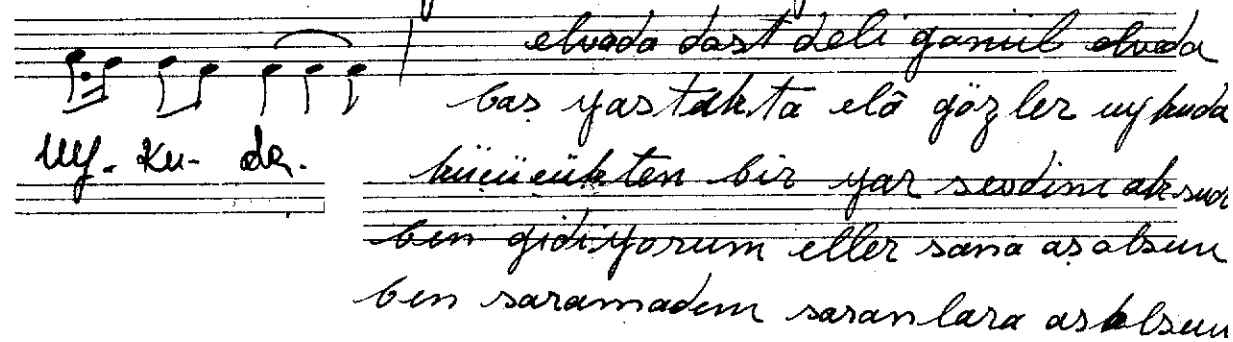 elveda dost deli gönül elveda
baş yastıkta elâ gözler uykuda
uy- ku- da.
küçücükten bir yar sevdim aksuda
ben gidiyorum eller sana aşolsun
ben saramadım saranlara aşkolsun